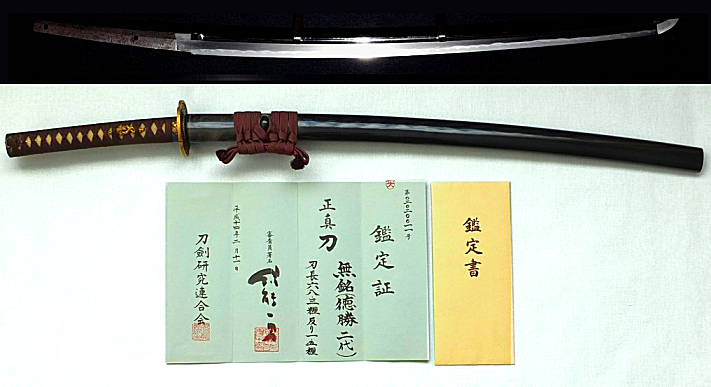 鑑定証
正真
刀
無銘(徳勝二代)
刃長六八三糎反り一五糎
平成十四年二月十一日
審査員署名
刀剣研究連合会
鑑定書